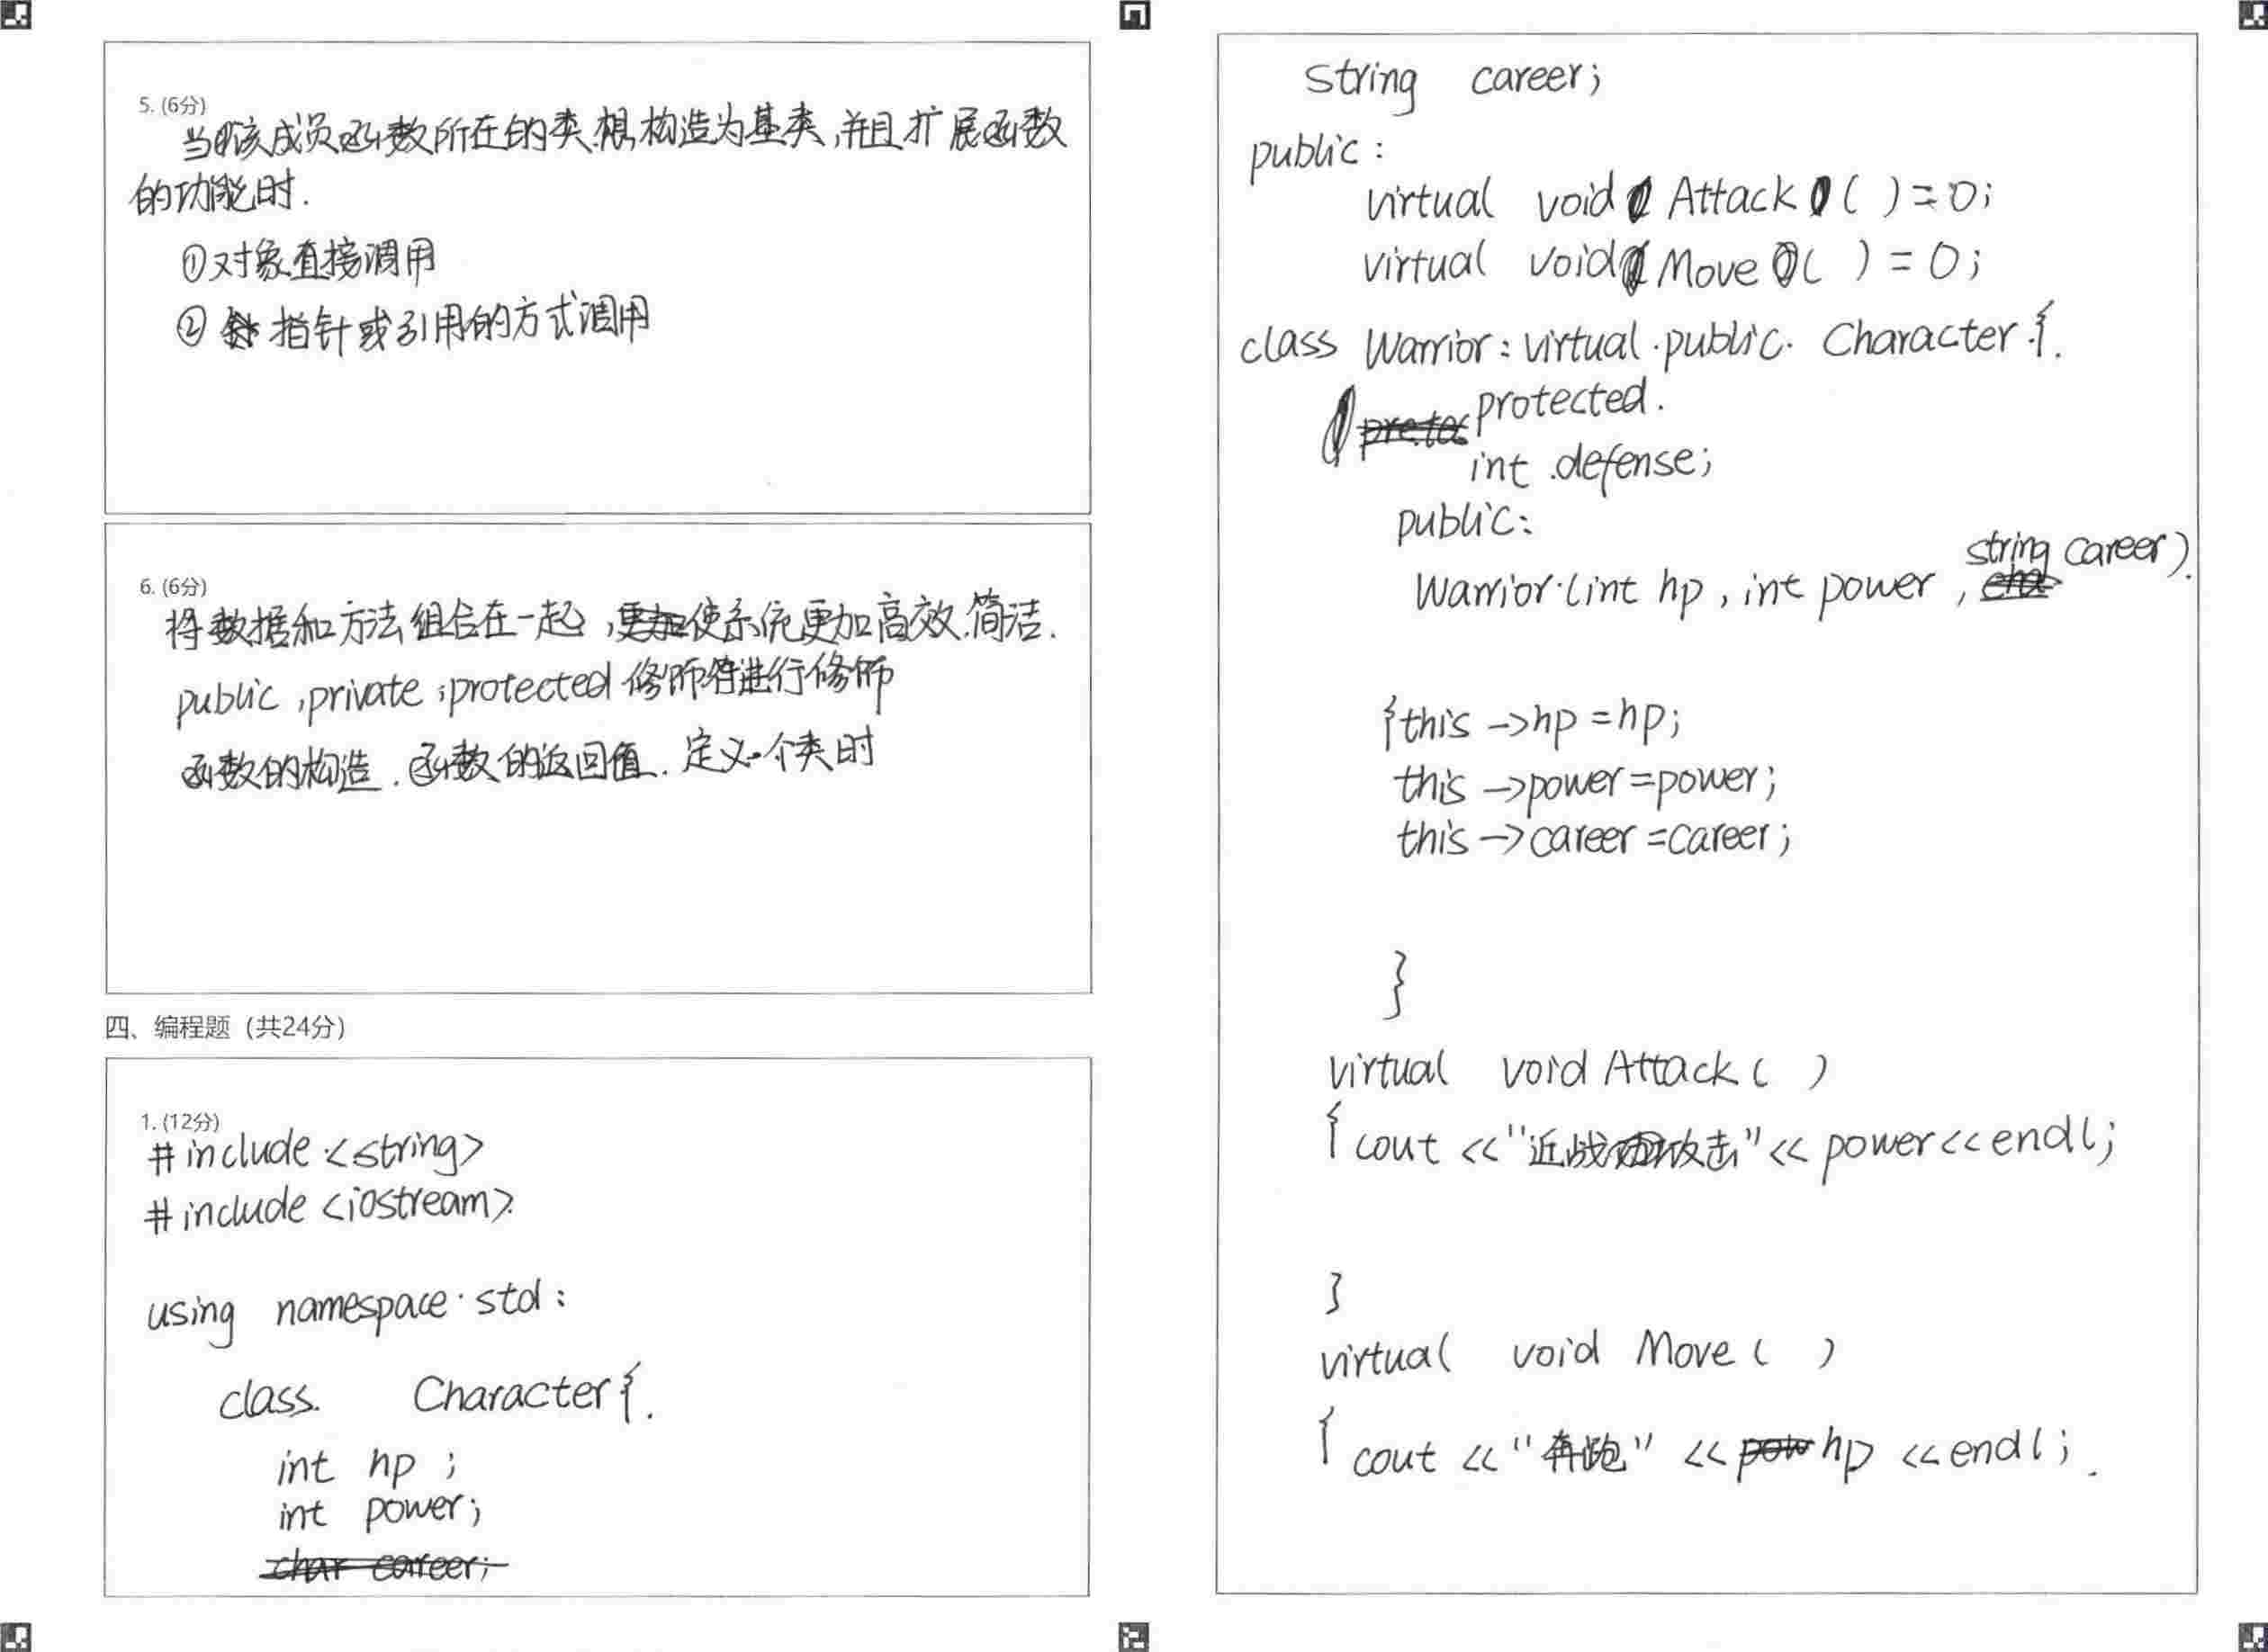 5. (6分)
当该成员函数所在的类.想构造为基类,并且扩展函数
的功能时.
①对象直接调用
② 指针或引用的方式调用
6. (6分)
将数据和方法组合在一起,使系统更加高效.简洁.
public ,private ;protected 修饰符进行修饰
函数的构造.函数的返回值.定义一个类时
四、编程题（共24分）
1. (12分)
#include <string>
#include <iostream>
using namespace std:
class. Character{.
int hp ;
int power;
char career;
string career;
public:
virtual void Attack ( )=0;
virtual void Move ( ) = 0;
class Warrior: virtual.public. Character.{.
protected.
int .defense;
public:
Warrior.(int hp , int power , string career).
{this ->hp =hp;
this ->power=power;
this ->career=career;
}
virtual void Attack ( )
{ cout <<"近战攻击"<< power<<endl;
}
virtual void Move ( )
{ cout <<"奔跑" << hp <<endl; .